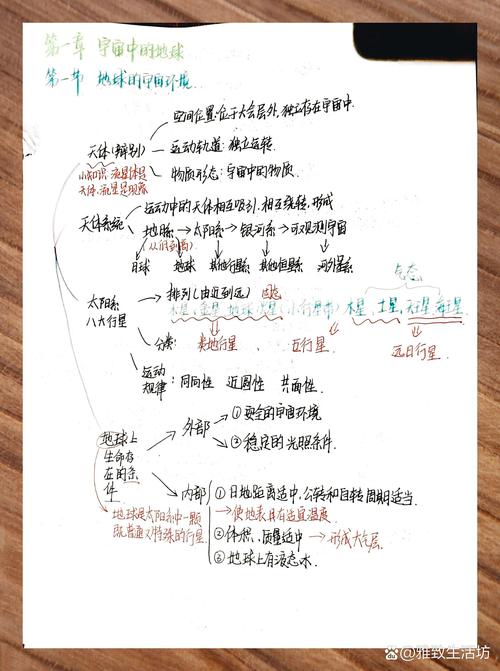 第一章 宇宙中的地球
第一节 地球的宇宙环境
空间位置:位于大气层外,独立存在宇宙中.
天体(辨别)
运动轨道:独立运转.
小知识:流星体是
天体,流星是现象
物质形态:宇宙中的物质.
天体系统
运动中的天体相互吸引,相互绕转,形成
地月系→太阳系→银河系→可观测宇宙
(从低到高)
月球 地球 其他行星系 其他恒星系 河外星系
气态
太阳系
八大行星
排列(由近到远) 固态
水星,金星 地球 火星 (小行星带) 木星,土星,天王星 海王星
分类:
类地行星、 五行星 远日行星.
运动
规律:同向性 近圆性 共面性.
地球上
生命存
在的条
件
外部
①安全的宇宙环境
②稳定的光照条件.
内部
①日地距离适中,公转和自转周期适当.
→使地表具有适宜温度.
地球是太阳系中一颗
既普通又特殊的行星.
②体积、质量适中→形成大气层.
③地球上有液态水.
雅致生活坊